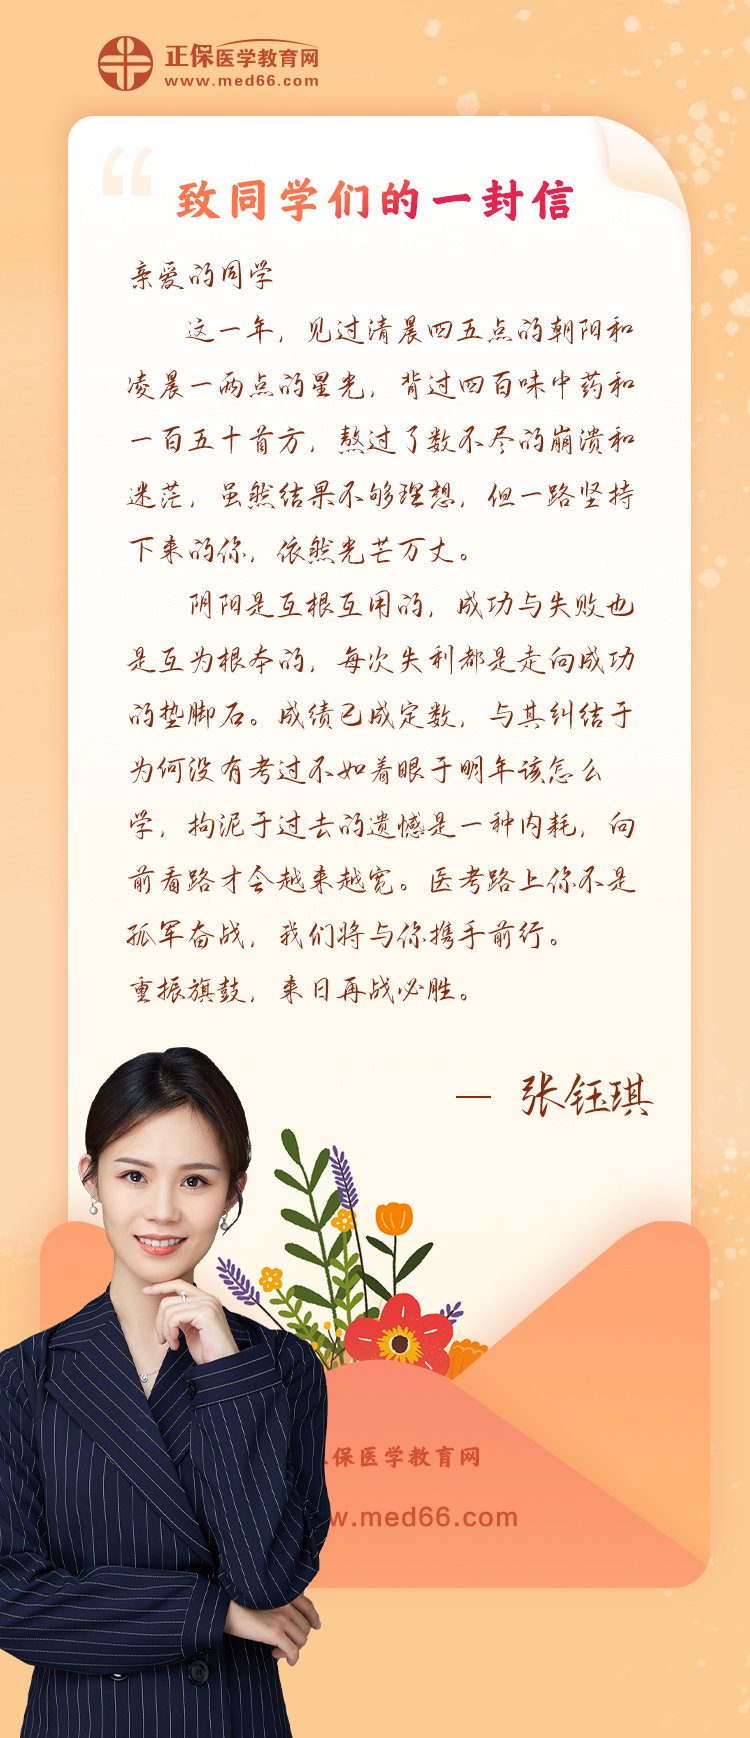 正保医学教育网
www.med66.com
致同学们的一封信
亲爱的同学
这一年，见过清晨四五点的朝阳和
凌晨一两点的星光，背过四百味中药和
一百五十首方，熬过了数不尽的崩溃和
迷茫，虽然结果不够理想，但一路坚持
下来的你，依然光芒万丈。
阴阳是互根互用的，成功与失败也
是互为根本的，每次失利都是走向成功
的垫脚石。成绩已成定数，与其纠结于
为何没有考过不如着眼于明年该怎么
学，拘泥于过去的遗憾是一种内耗，向
前看路才会越来越宽。医考路上你不是
孤军奋战，我们将与你携手前行。
重振旗鼓，来日再战必胜。
— 张钰琪
保医学教育网
w.med66.com